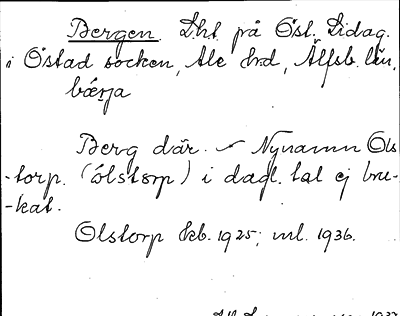 Bergen. Lht på Öst. Lidag.
i Östad socken, Ale hrd, Älfsb. län,
bæ̀rja
Berg där. – Nynamn Ols-
-torp. (ólstɔrp) i dagl. tal ej bru-
-kat.
Olstorp kb. 1925; ml. 1936.